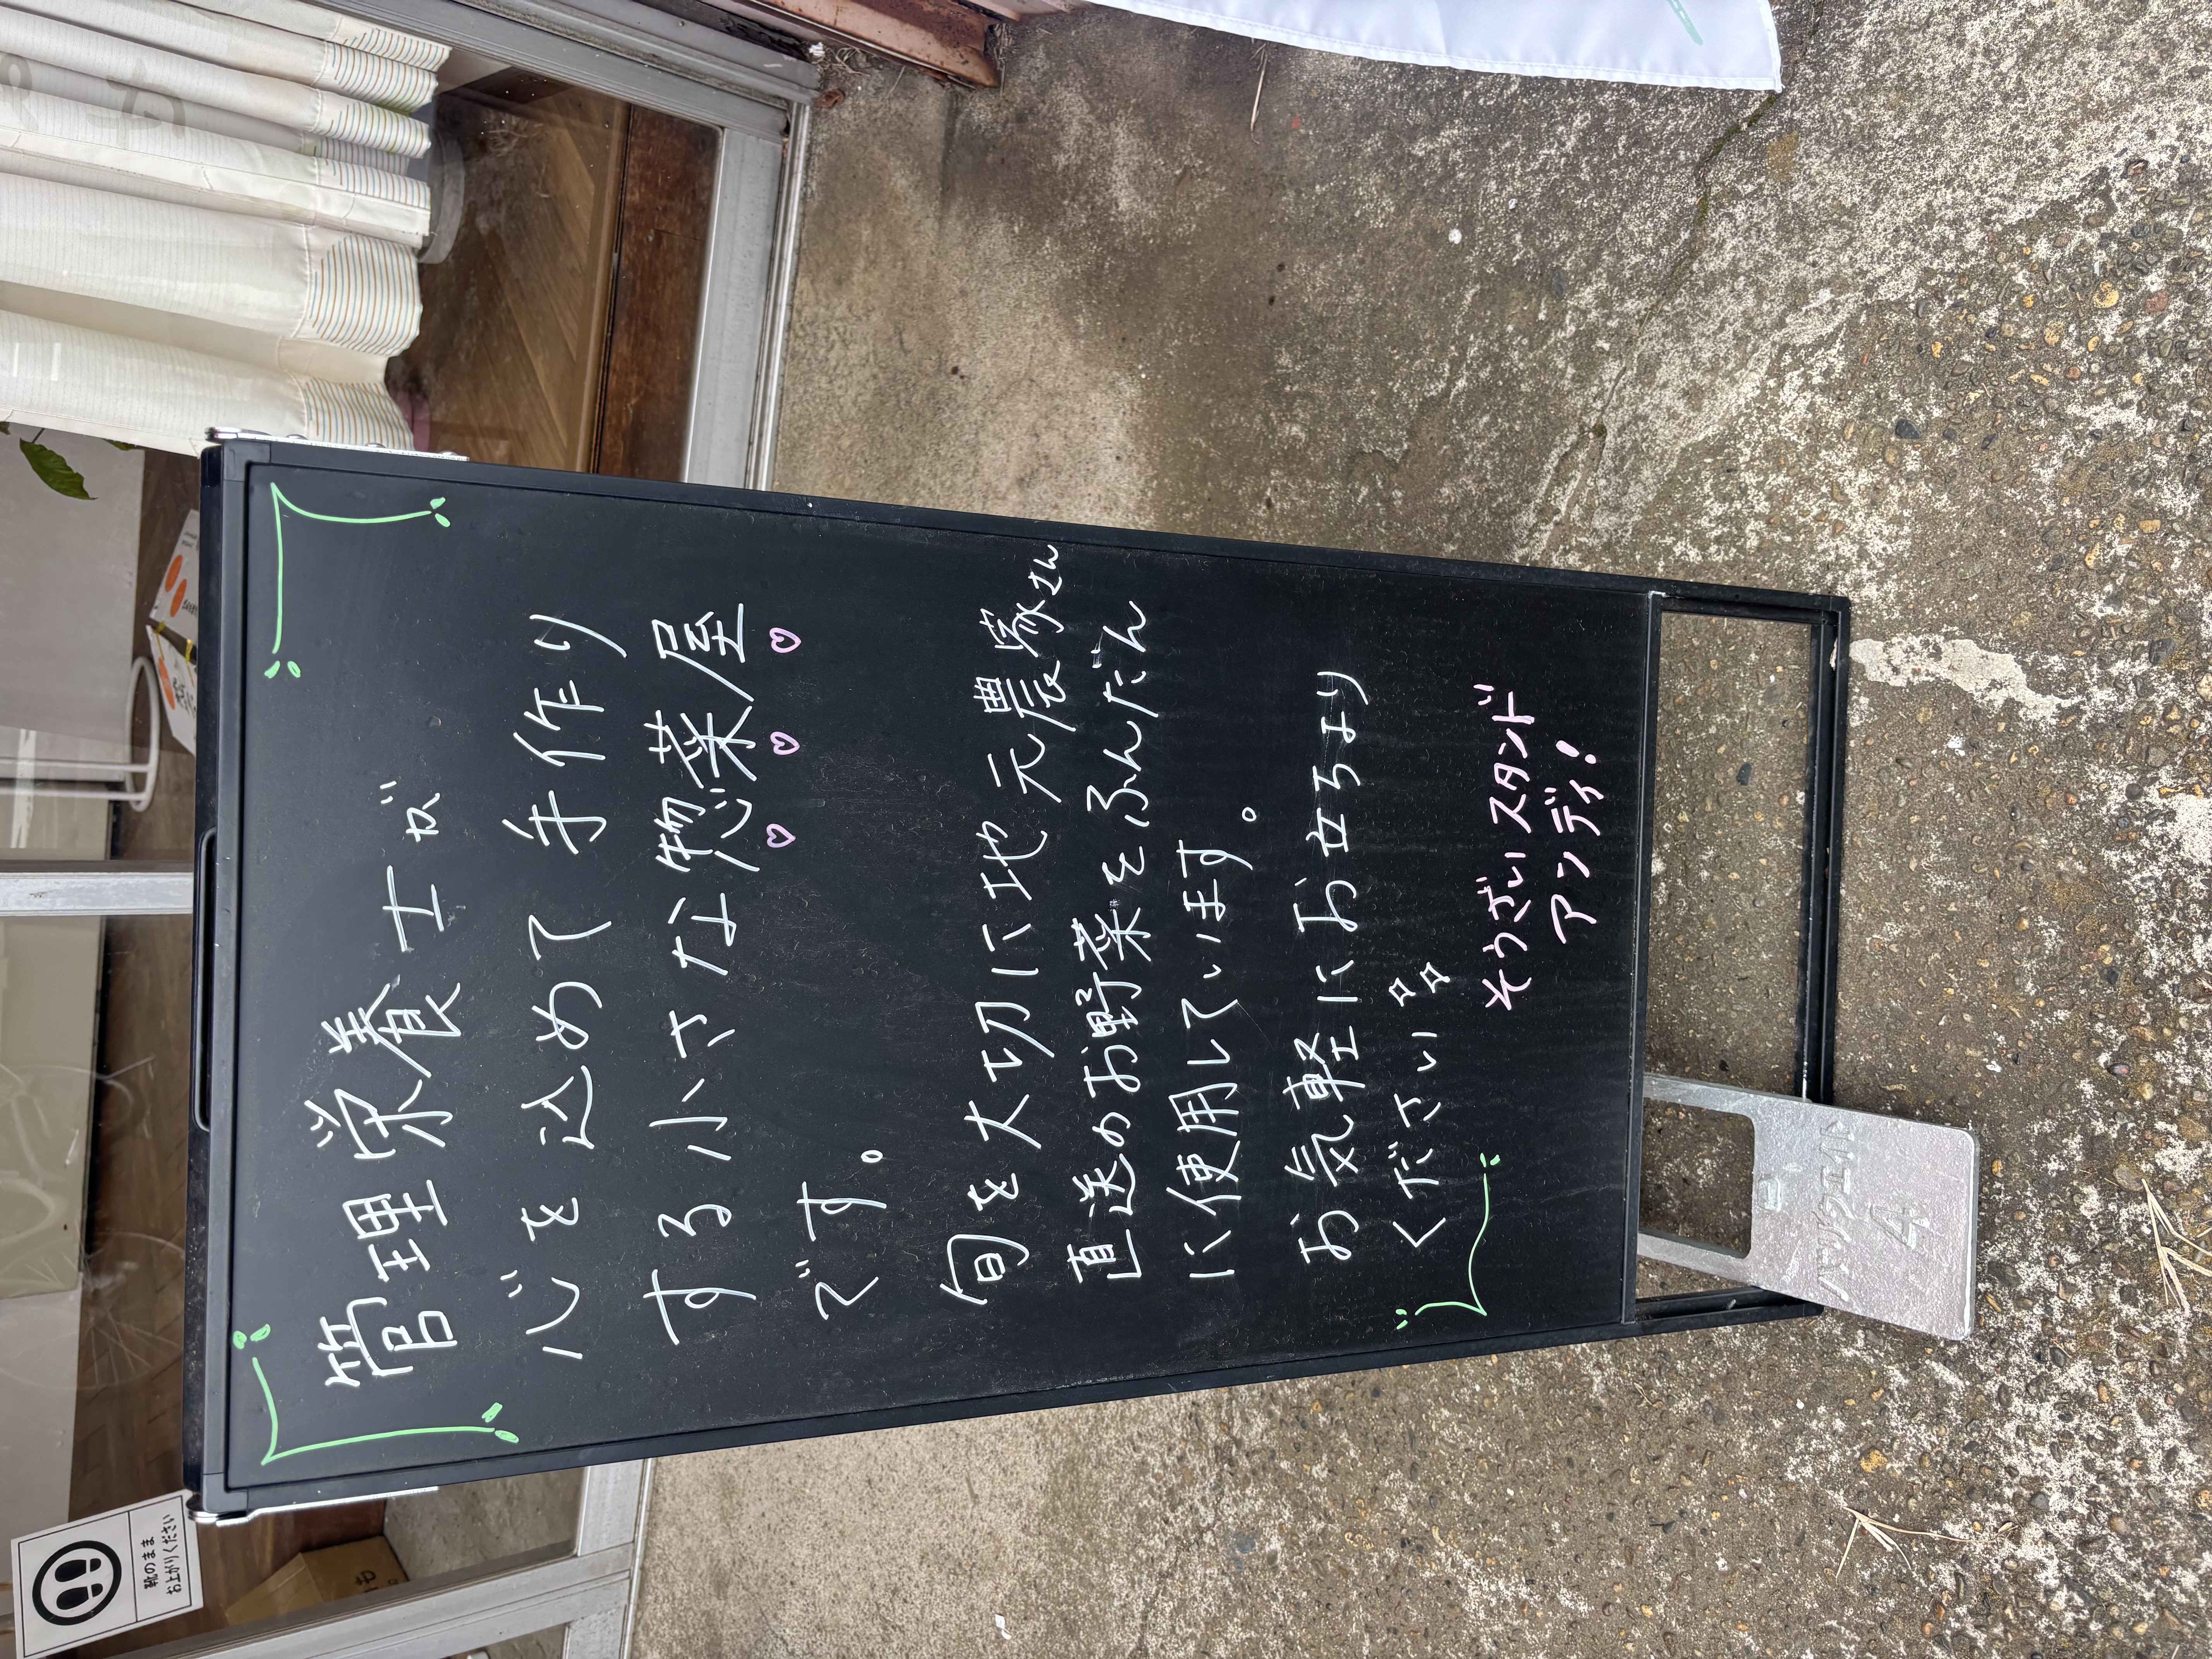 管理栄養士が
心を込めて手作り
する小さな惣菜屋
です。
旬を大切に地元農家さん
直送のお野菜をふんだん
に使用しています。
お気軽にお立ちより
ください
そうざいスタンド
アンディ!
靴のまま
お上がりください
4